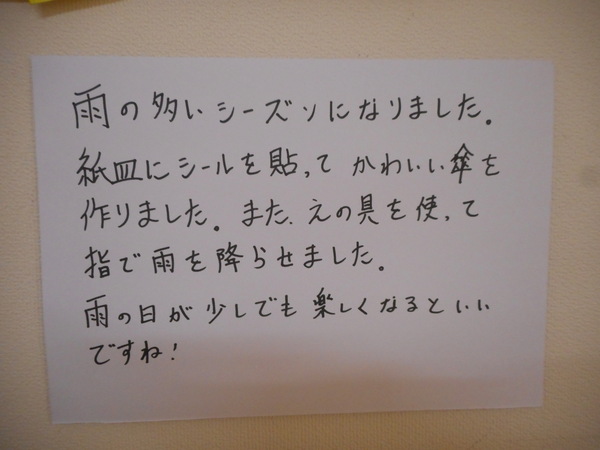 雨の多いシーズンになりました。
紙皿にシールを貼って かわいい傘を
作りました。また、えの具を使って
指で雨を降らせました。
雨の日が少しでも楽しくなるといい
ですね!